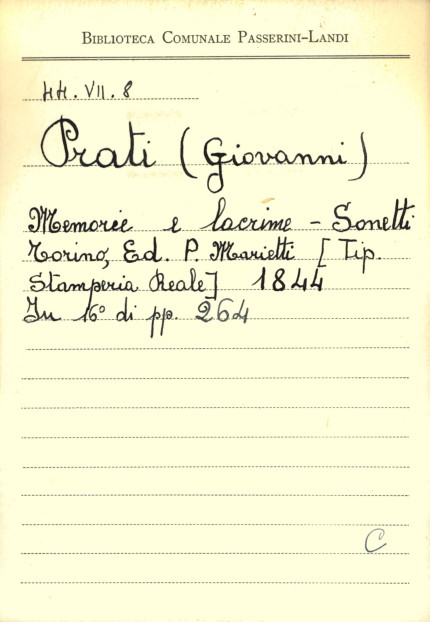 BIBLIOTECA COMUNALE PASSERINI-LANDI
44.VII.8
Prati (Giovanni)
Memorie e lacrime - Sonetti
Torino, Ed. P. Marietti [Tip.
Stamperia Reale] 1844
In 16° di pp. 264
C